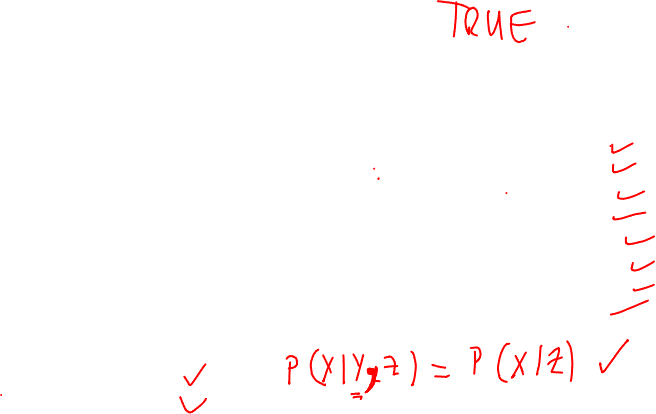 TRUE
P(X|Y,Z) = P(X|Z) ✓